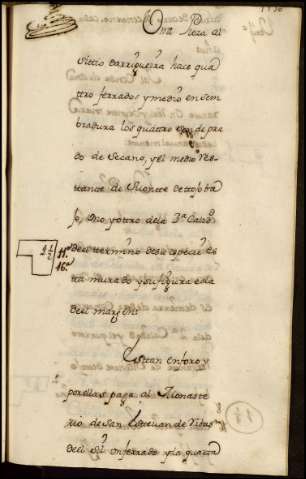 Una Pieza al
Sittio Barriqueira hace qua
ttro ferrados y medio en sem
bradura los quattro son de pra
do de Secano, y el medio res
tante de Monte
Uno y otro de la 3ª Calidd
del termino de su especie es
ta murado y su figura es la
del marjen:
4 1/2
11.
16.
Estan en foro y
por ellas paga al Monaste
rio de San Estevan de Rivas
de el Sil un ferrado y la quarta